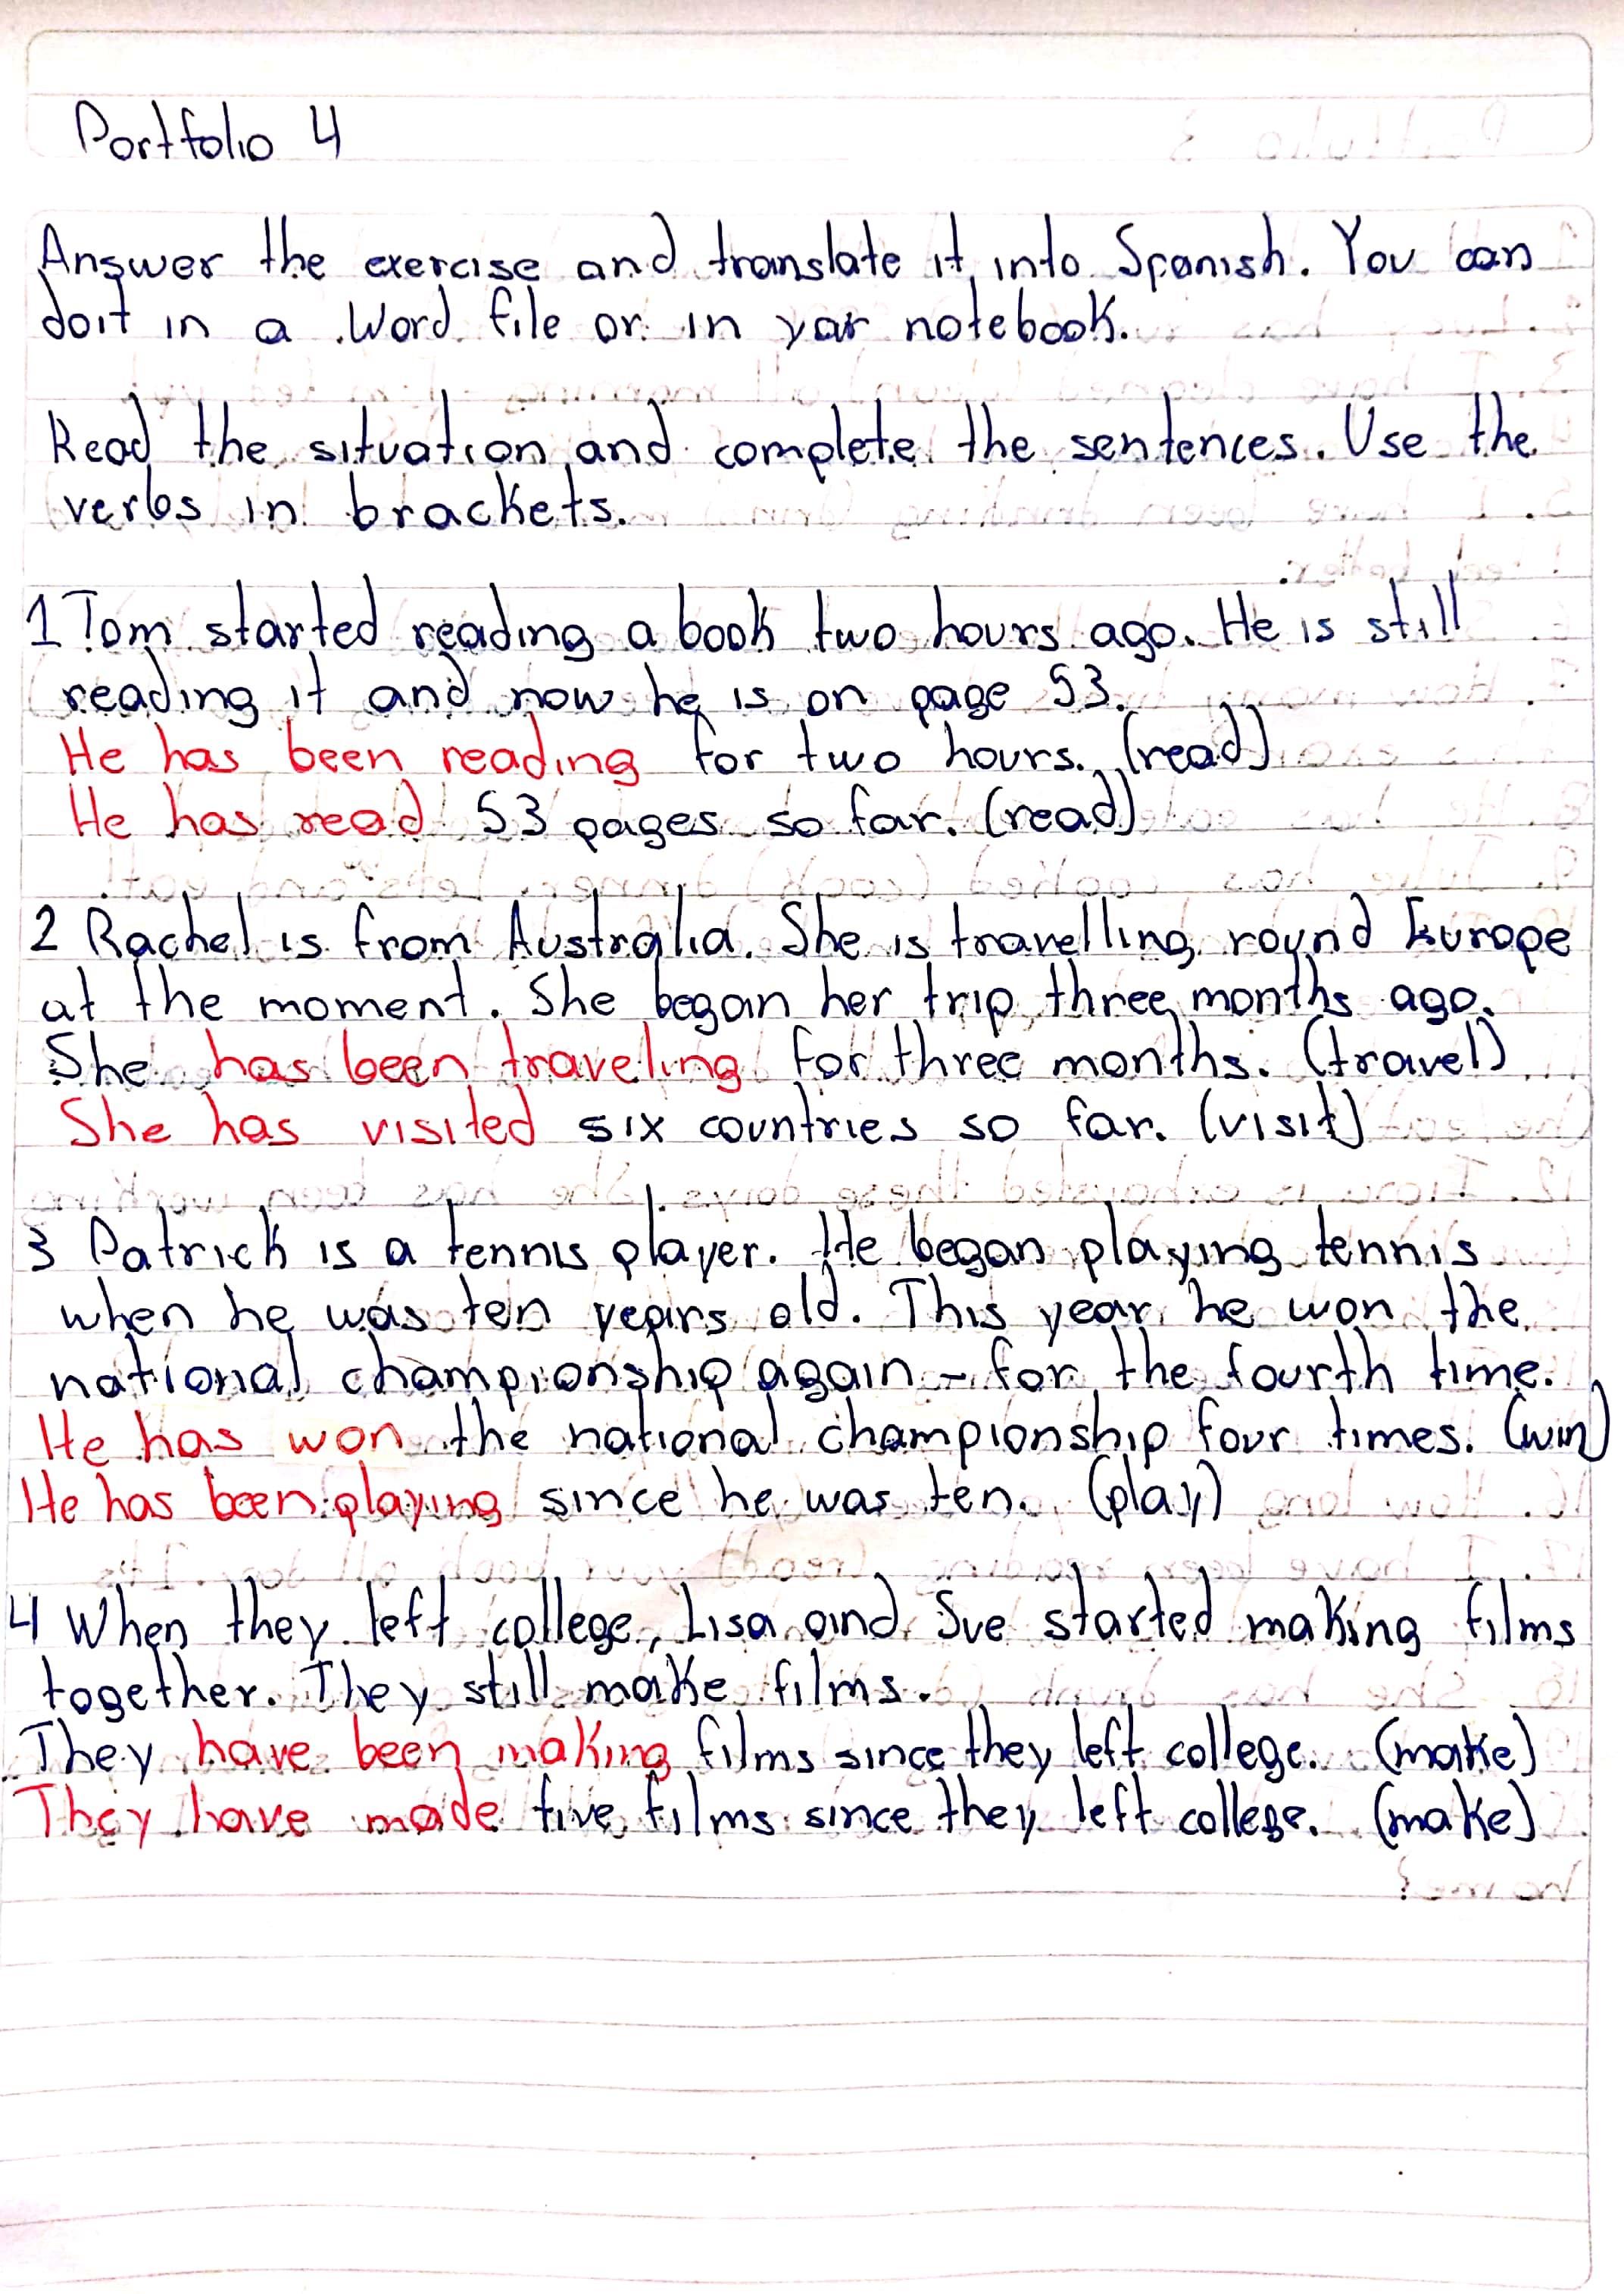 Portfolio 4
Answer the exercise and translate it into Spanish. You can
doit in a Word file or in your notebook.
Read the situation and complete the sentences. Use the
verbs in brackets.
1 Tom started reading a book two hours ago. He is still
reading it and now he is on page 53.
He has been reading for two hours. (read)
He has read 53 pages so far. (read)
2 Rachel is from Australia. She is travelling round Europe
at the moment. She began her trip three months ago.
She has been traveling for three months. (travel)
She has visited six countries so far. (visit)
3 Patrick is a tennis player. He began playing tennis
when he was ten years old. This year he won the
national championship again - for the fourth time.
He has won the national championship four times. (win)
He has been playing since he was ten. (play)
4 When they left college, Lisa and Sue started making films
together. They still make films.
They have been making films since they left college. (make)
They have made five films since they left college. (make)